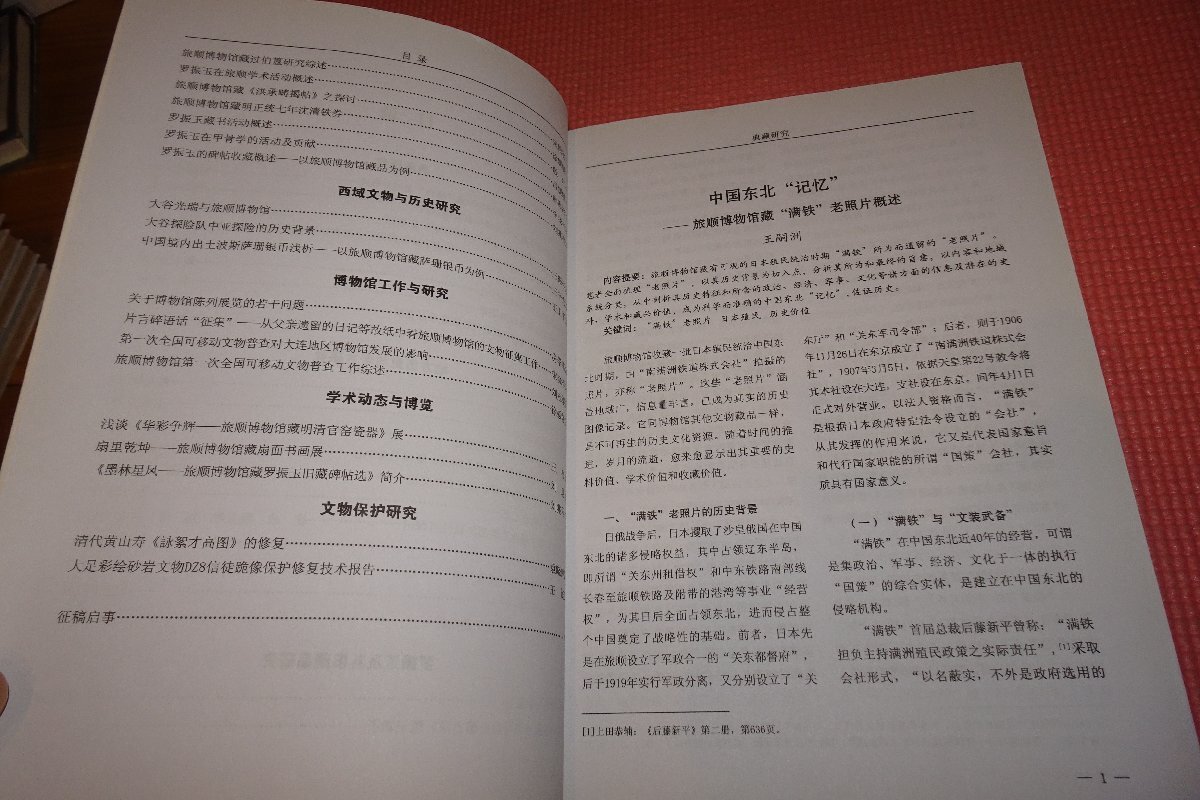 目 录
旅顺博物馆藏过伯簋研究综述
罗振玉在旅顺学术活动概述
旅顺博物馆藏《洪承畴揭帖》之探讨
旅顺博物馆藏明正统七年沈清铁券
罗振玉藏书活动概述
罗振玉在甲骨学的活动及贡献
罗振玉的碑帖收藏概述——以旅顺博物馆藏品为例
西域文物与历史研究
大谷光瑞与旅顺博物馆
大谷探险队中亚探险的历史背景
中国境内出土波斯萨珊银币浅析——以旅顺博物馆藏萨珊银币为例
博物馆工作与研究
关于博物馆陈列展览的若干问题
片言碎语话“征集”——从父亲遗留的日记等故纸中看旅顺博物馆的文物征集工作
第一次全国可移动文物普查对大连地区博物馆发展的影响
旅顺博物馆第一次全国可移动文物普查工作综述
学术动态与博览
浅谈《华彩争辉——旅顺博物馆藏明清官窑瓷器》展
扇里乾坤——旅顺博物馆藏扇面书画展
《墨林星风——旅顺博物馆藏罗振玉旧藏碑帖选》简介
文物保护研究
清代黄山寿《詠絮才高图》的修复
大足彩绘砂岩文物DZ8信徒跪像保护修复技术报告
征稿启事
典藏研究
中国东北“记忆”
——旅顺博物馆藏“满铁”老照片概述
王嗣洲
内容提要：旅顺博物馆藏有可观的日本殖民统治时期“满铁”所为而遗留的“老照片”。
笔者全面梳理“老照片”，以其历史背景为切入点，分析其所为和最终的目的，以内容和地域
系统分类，从中剖析其历史特征和所含的政治、经济、军事、文化等诸方面的信息及存在的史
料、学术和藏品价值，成为科学而准确的中国东北“记忆”，佐证历史。
关键词：“满铁” 老照片 日本殖民 历史价值
旅顺博物馆收藏一批日本殖民统治中国东
北时期，由“南满洲铁道株式会社”拍摄的
照片，亦称“老照片”。这些“老照片”涵
盖地域广，信息量丰富，已成为真实的历史
图像记录。它同博物馆其他文物藏品一样，
是不可再生的历史文化资源。随着时间的推
进，岁月的流逝，愈来愈显示出其重要的史
料价值、学术价值和收藏价值。
一、“满铁”老照片的历史背景
日俄战争后，日本攫取了沙皇俄国在中国
东北的诸多侵略权益，其中占领辽东半岛，
即所谓“关东州租借权”和中东铁路南部线
长春至旅顺铁路及附带的港湾等事业“经营
权”，为其日后全面占领东北，进而侵占整
个中国奠定了战略性的基础。前者，日本先
是在旅顺设立了军政合一的“关东都督府”，
后于1919年实行军政分离，又分别设立了“关
东厅”和“关东军司令部”；后者，则于1906
年11月26日在东京成立了“南满洲铁道株式会
社”，1907年3月5日，依据天皇第22号敕令将
其本社设在大连，支社设在东京，同年4月1日
正式对外营业。以法人资格而言，“满铁”
是根据日本政府特定法令设立的“会社”，
从其发挥的作用来说，它又是代表国家意旨
和代行国家职能的所谓“国策”会社，其实
质具有国家意义。
（一）“满铁”与“文装武备”
“满铁”在中国东北近40年的经营，可谓
是集政治、军事、经济、文化于一体的执行
“国策”的综合实体，是建立在中国东北的
侵略机构。
“满铁”首届总裁后藤新平曾称：“满铁
担负主持满洲殖民政策之实际责任”，[1]采取
会社形式，“以名蔽实，不外是政府选用的
[1]上田恭辅：《后藤新平》第二册，第636页。
— 1 —